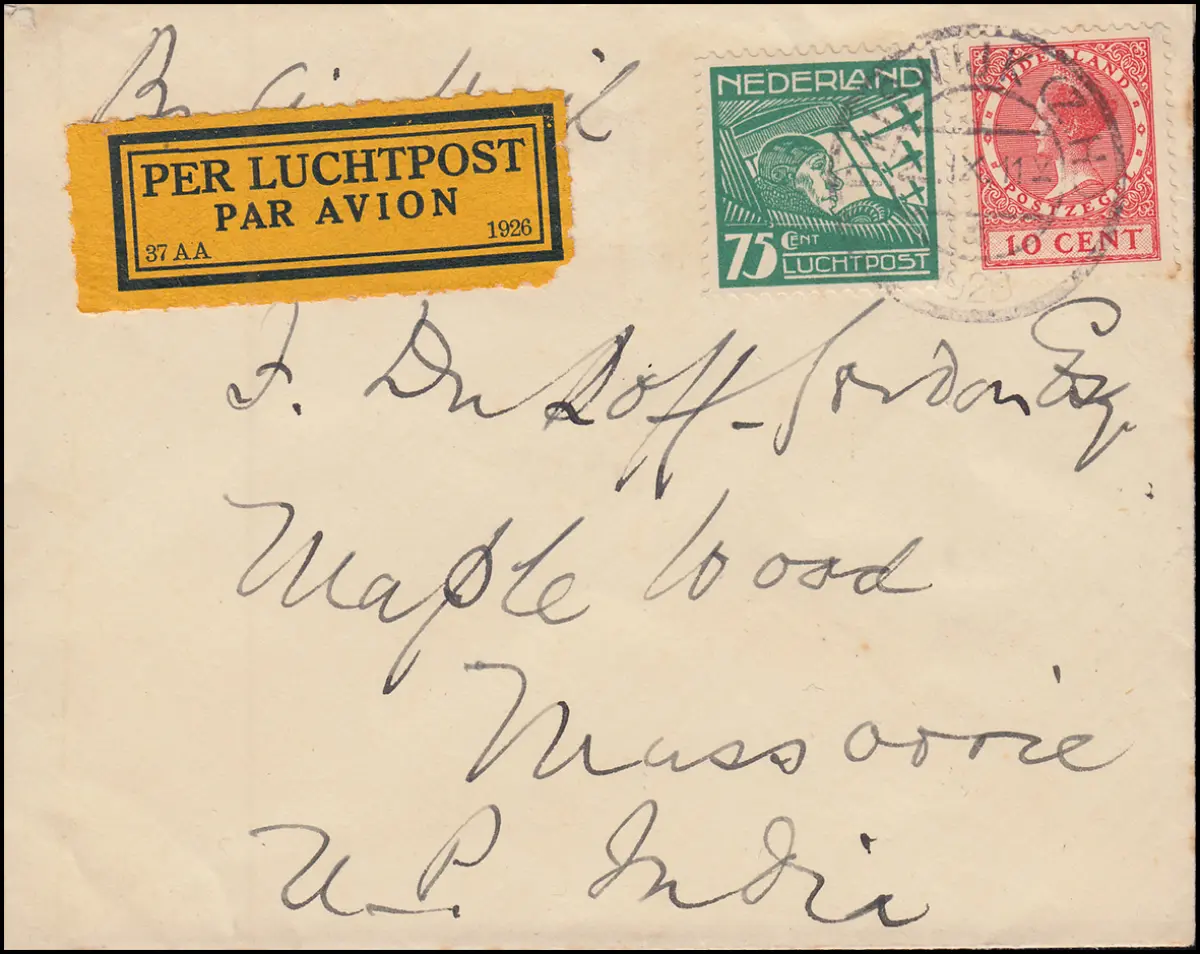 By Air Mail
PER LUCHTPOST
PAR AVION
37 AA
1926
NEDERLAND
75 CENT
LUCHTPOST
NEDERLAND
POSTZEGEL
10 CENT
J. Duff-Gordon Esq.
Maple Wood
Mussoorie
U.P. India